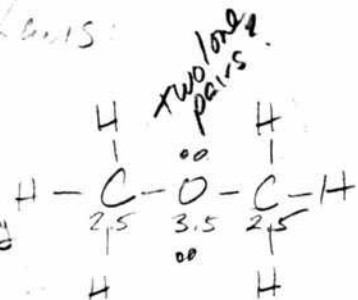 two lone
pairs.
H H
H – C – O – C – H
2.5 3.5 2.5
H H